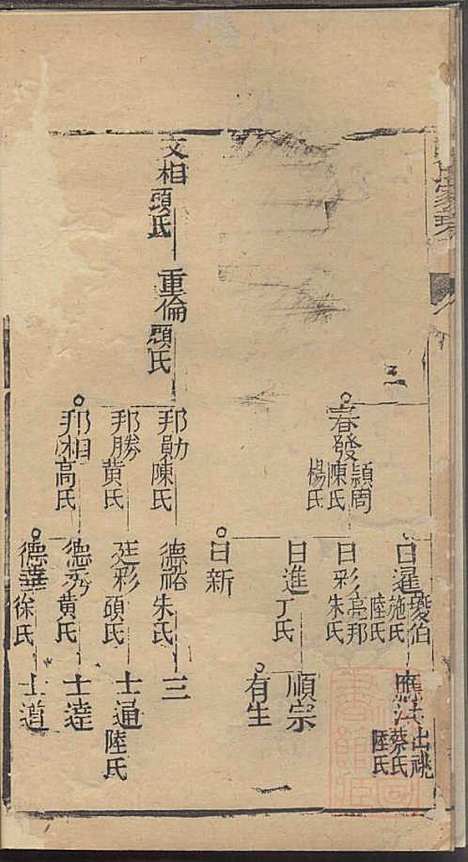 三
春發 頴周 陳氏 楊氏
日暹 瓊伯 施氏 陸氏
日彩 亮邦 朱氏
日進 丁氏
日新
應法 出祧 蔡氏 陸氏
順宗
有生
一
文相 頭氏
重倫 顧氏
邦勛 陳氏
邦勝 黃氏
邦相 高氏
德裕 朱氏
廷彩 碩氏
德秀 黃氏
德華 徐氏
三
士通 陸氏
士達
士道